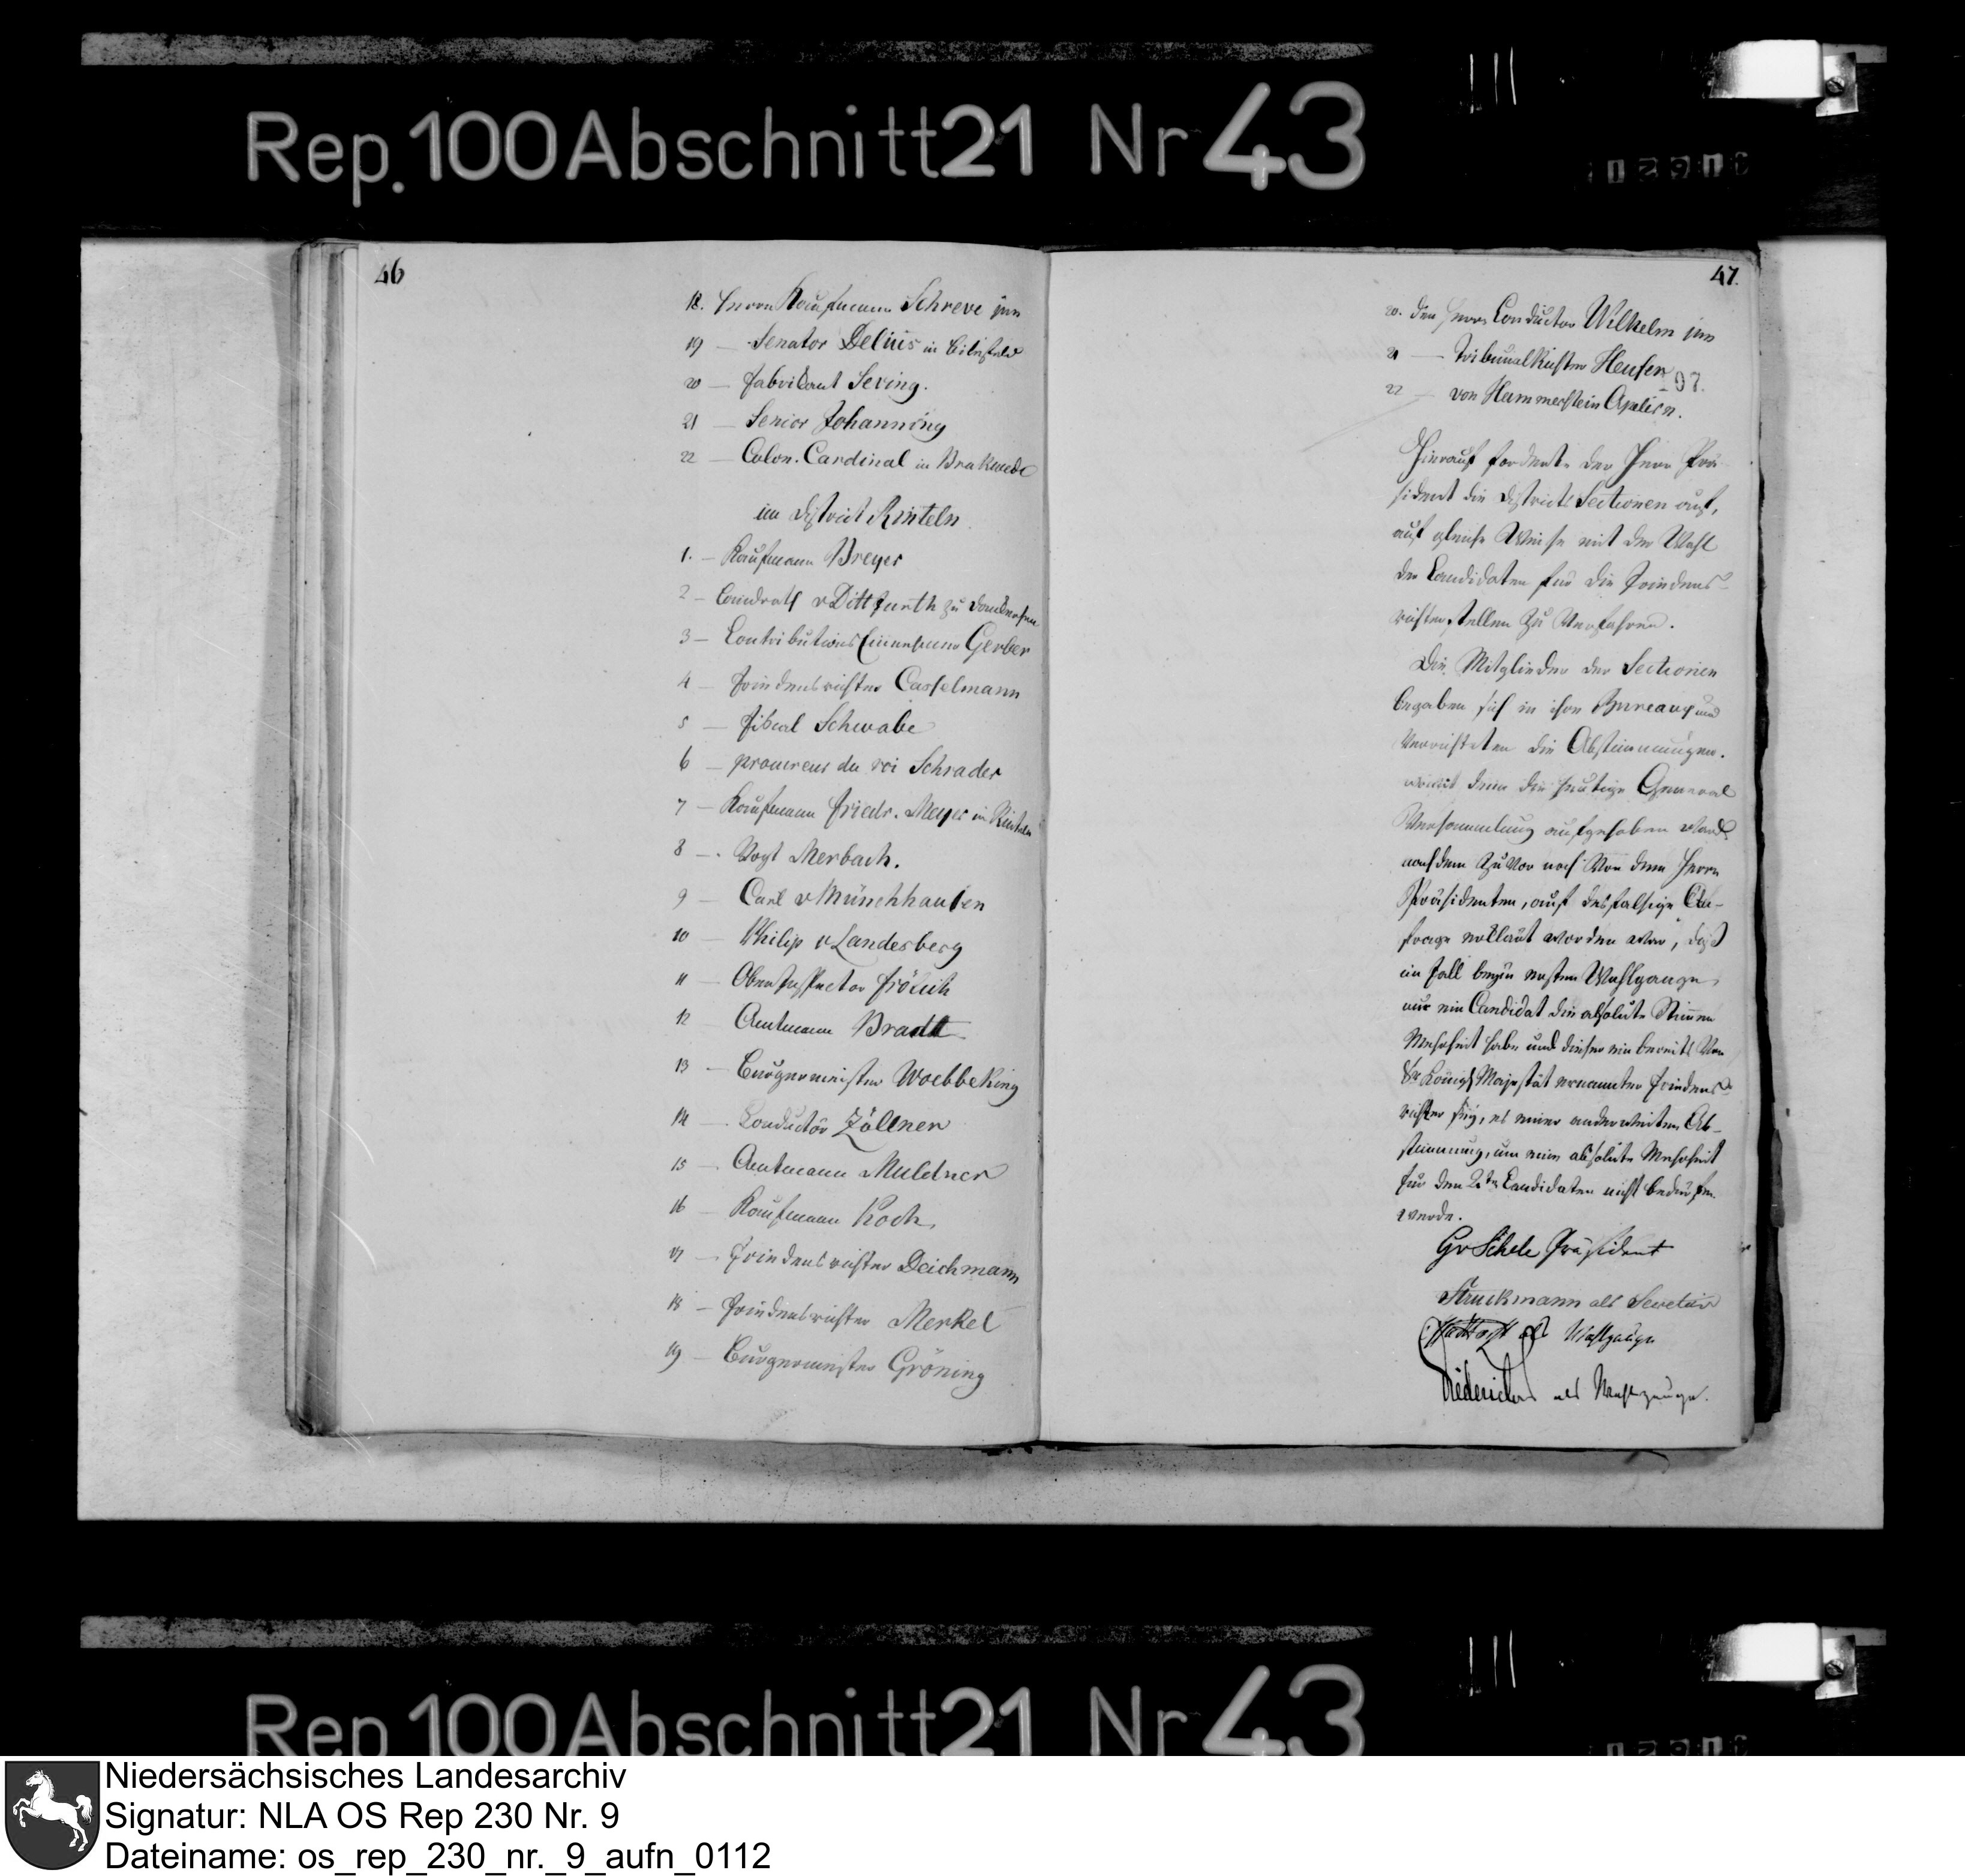 Rep. 100 Abschnitt 21 Nr 43
46
18. Herrn Kaufmann Schreve jun
19 — Senator Delius in Bilefeld
20 — Fabrikant Sering.
21 — Senior Johanning
22 — Colon. Cardinal in Brakwede
im District Rinteln
1. — Kaufmann Breyer
2 — Landrath v Dittfurth zu Dankersen
3 — Contributions Einnehmer Gerber
4 — Friedensrichter Casselmann
5 — Fiscal Schwabe
6 — procureur du roi Schrader
7 — Kaufmann Friedr. Meyer in Rinteln
8 — Vogt Merbach.
9 — Carl v Münchhausen
10 — Philip v Landesberg
11 — Oberinspector Frölich
12 — Amtmann Bradt
13 — Burgermeister Woebbeking
14 — Conductör Zöllner
15 — Amtmann Muldner
16 — Kaufmann Koch
17 — Friedensrichter Deichmann
18 — Friedensrichter Merkel
19 — Burgermeister Gröning
47.
20. den Herrn Conductor Wilhelm jun
21 — Tribunalrichter Heusen
97.
22 — von Hammerstein Apeldrn.
Hierauf forderte der Herr Prä-
sident die Districts Sectionen auf,
auf gleiche Weise mit der Wahl
der Candidaten fur die Friedens-
richterstellen zu verfahren.
Die Mitglieder der Sectionen
begaben sich in ihre Bureaux und
verrichteten die Abstimmungen.
womit denn die heutige General
Versammlung aufgehoben ward
nachdem zuvor noch von dem Herrn
Präsidenten, auf desfalsige An-
frage erklärt worden war, daß
im Fall beym ersten Wahlgange
nur ein Candidat die absolute Stimmen
Mehrheit habe und dieser ein bereits von
Sr Königl Majestät ernannter Friedens-
richter sey, es einer anderweiten Ab-
stimmung, um eine absolute Mehrheit
für den 2ten Candidaten nicht bedürfen
werde.
GvSchele Präsident
Struckmann als Secretär
als Wahlzeuge
als Wahlzeuge.
Rep 100 Abschnitt 21 Nr 43
Niedersächsisches Landesarchiv
Signatur: NLA OS Rep 230 Nr. 9
Dateiname: os_rep_230_nr._9_aufn_0112